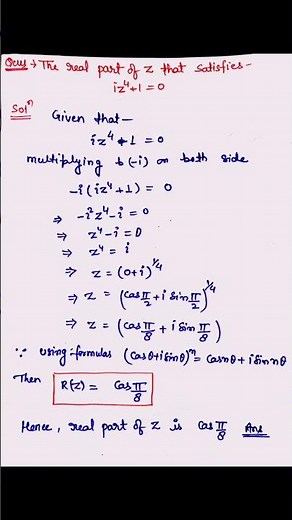 Ques → The real part of z that satisfies -
iz⁴+1=0
Solⁿ
Given that -
iz⁴+1=0
multiplying b (-i) on both side
-i(iz⁴+1) = 0
⇒ -i²z⁴-i=0
⇒ z⁴-i=0
⇒ z⁴ = i
⇒ z = (0+i)^1/4
⇒ z = (cos π/2 + i sin π/2)^1/4
⇒ z = (cos π/8 + i sin π/8)
∵ using formulas (cosθ+isinθ)ⁿ = cosnθ+isin nθ
Then R(z) = cos π/8
Hence, real part of z is cos π/8 Ans